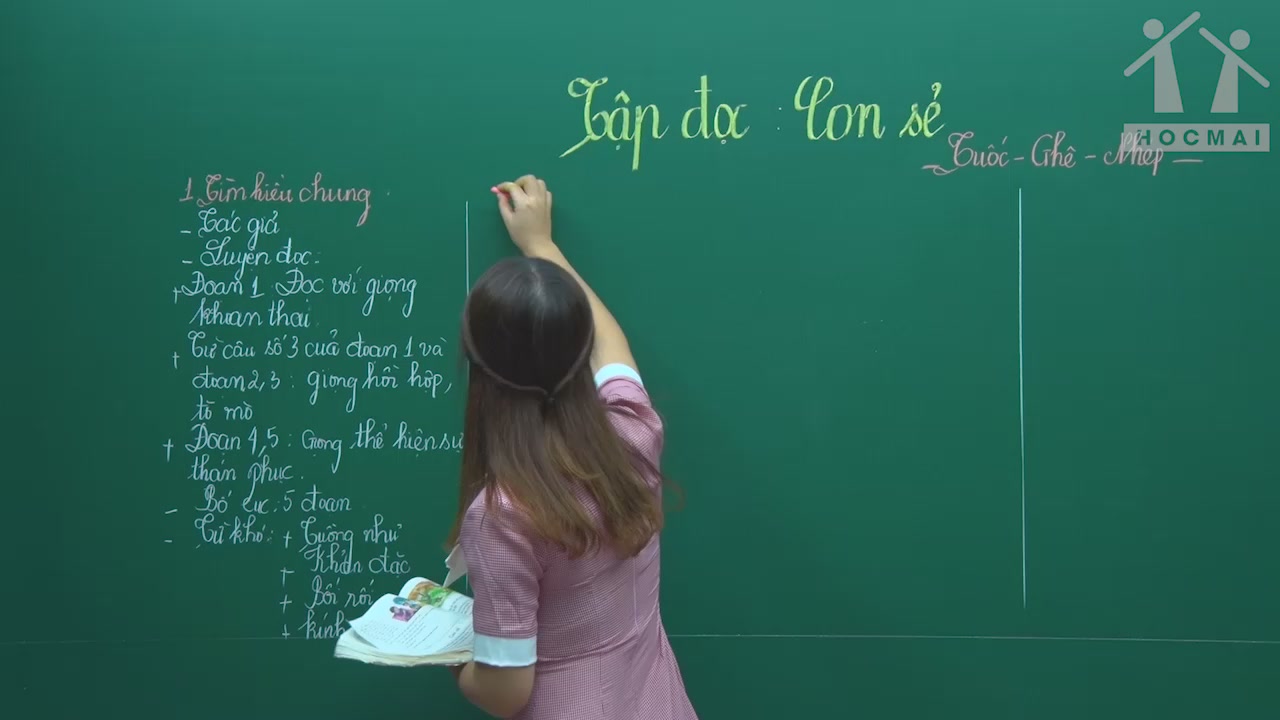 HOCMAI
Tập đọc : Con sẻ
– Tuốc – Ghê – Nhép –
1. Tìm hiểu chung
- Tác giả
- Luyện đọc:
+ Đoạn 1: Đọc với giọng
khoan thai.
+ Từ câu số 3 của đoạn 1 và
đoạn 2, 3 : giọng hồi hộp,
tò mò
+ Đoạn 4, 5 : Giọng thể hiện sự
thán phục.
- Bố cục: 5 đoạn
- Từ khó: + Tuồng như
+ Khản đặc
+ Bối rối
+ kính